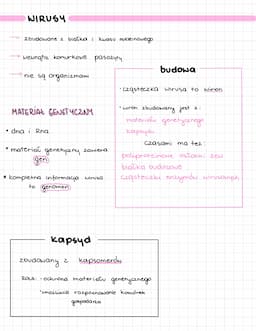 WIRUSY
→ zbudowane z białka i kwasu nukleinowego
→ wewnątrz komórkowe pasożyty
→ nie są organizmami
budowa
• cząsteczka wirusa to wirion
• wirion zbudowany jest z:
materiału genetycznego
kapsydu
czasami ma też:
białka budujące
cząsteczki enzymów wirusowych
MATERIAŁ GENETYCZNY
• dna i rna
• materiał genetyczny zawiera
geny
• kompletna informacja wirusa
to genom
kapsyd
zbudowany z kapsomerów
rola: -ochrona materiału genetycznego
-umożliwia rozpoznawanie komórek
gospodarza